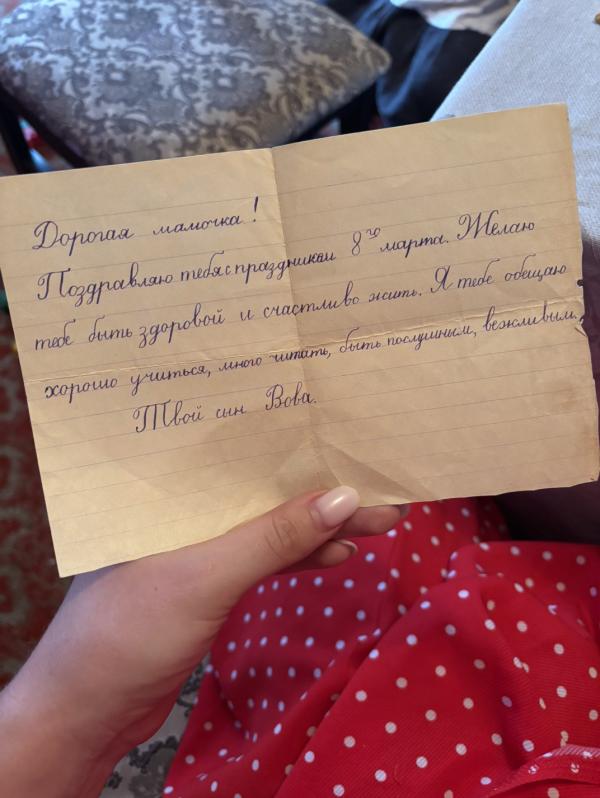 Дорогая мамочка!
Поздравляю тебя с праздником 8го марта. Желаю
тебе быть здоровой и счастливо жить. Я тебе обещаю
хорошо учиться, много читать, быть послушным, вежливым.
Твой сын Вова.